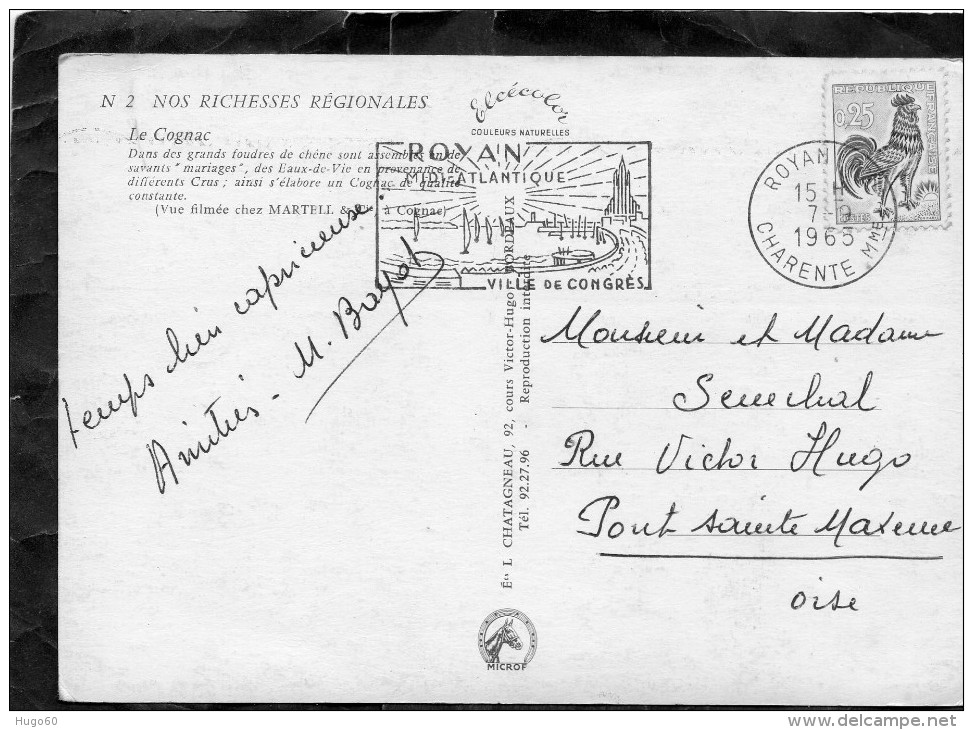 N 2 NOS RICHESSES RÉGIONALES
Le Cognac
Dans des grands foudres de chêne sont assemblés en de
savants "mariages", des Eaux-de-Vie en provenance de
différents Crus ; ainsi s'élabore un Cognac de qualité
constante.
(Vue filmée chez MARTELL & Cie à Cognac)
Elcécolor
COULEURS NATURELLES
ROYAN
MIDI-ATLANTIQUE
VILLE DE CONGRÈS
ROYAN
15 H
1965
CHARENTE Mme
REPUBLIQUE FRANÇAISE
0,25
temps bien capricieuse.
Amitiés - M. Bayot
Éts L CHATAGNEAU, 92, cours Victor-Hugo BORDEAUX
Tél. 92.27.96 - Reproduction interdite
Monsieur et Madame
Senechal
Rue Victor Hugo
Pont Sainte Maxence
oise
MICROF
Hugo60
www.delcampe.net